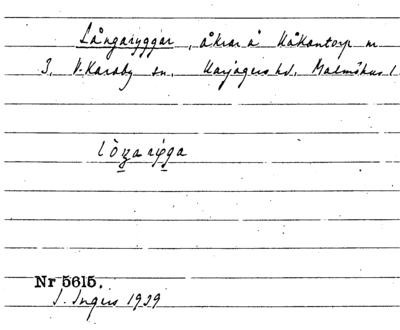 Långaryggar, åkrar å Håkantorp nr
3, V. Karaby sn. Harjagers hd. Malmöhus l
Nr 5615.
I. Ingers 1939